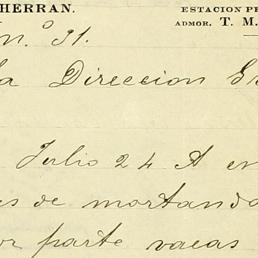 HERRAN.
ESTACION PE
ADMOR. T. M.
n.º 31.
a Direccion G
Julio 24 A en
es de mortanda
or parte vacas